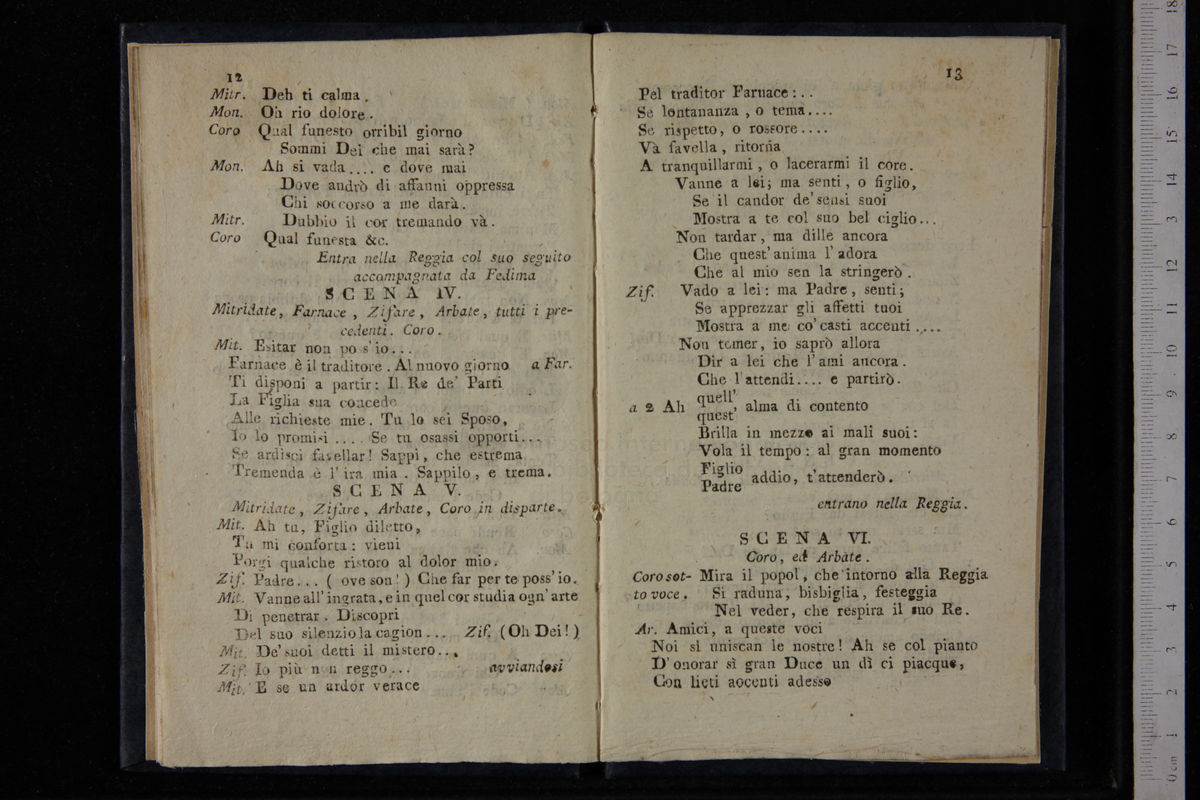 12
Mitr. Deh ti calma.
Mon. Oh rio dolore.
Coro Qual funesto orribil giorno
Sommi Dei che mai sarà?
Mon. Ah si vada.... e dove mai
Dove andrò di affanni oppressa
Chi soccorso a me darà.
Mitr. Dubbio il cor tremando và.
Coro Qual funesta &c.
Entra nella Reggia col suo seguito
accompagnata da Fedima
SCENA IV.
Mitridate, Farnace, Zifare, Arbate, tutti i pre-
cedenti. Coro.
Mit. Esitar non poss'io...
Farnace è il traditore. Al nuovo giorno a Far.
Ti disponi a partir: Il Re de' Parti
La Figlia sua concede
Alle richieste mie. Tu lo sei Sposo,
Io lo promisi .... Se tu osassi opporti...
Se ardisci favellar! Sappi, che estrema
Tremenda è l'ira mia. Sappilo, e trema.
SCENA V.
Mitridate, Zifare, Arbate, Coro in disparte.
Mit. Ah tu, Figlio diletto,
Tu mi conforta: vieni
Porgi qualche ristoro al dolor mio.
Zif. Padre... ( ove son! ) Che far per te poss'io.
Mit. Vanne all'ingrata, e in quel cor studia ogn'arte
Di penetrar. Discopri
Del suo silenzio la cagion... Zif. (Oh Dei!)
Mit. De' suoi detti il mistero...
Zif. Io più non reggo... avviandosi
Mit. E se un ardor verace
13
Pel traditor Farnace:..
Se lontananza, o tema....
Se rispetto, o rossore....
Và favella, ritorna
A tranquillarmi, o lacerarmi il core.
Vanne a lei; ma senti, o figlio,
Se il candor de' sensi suoi
Mostra a te col suo bel ciglio...
Non tardar, ma dille ancora
Che quest'anima l'adora
Che al mio sen la stringerò.
Zif. Vado a lei: ma Padre, senti;
Se apprezzar gli affetti tuoi
Mostra a me co'casti accenti.....
Non temer, io saprò allora
Dir a lei che l'ami ancora.
Che l'attendi.... e partirò.
quell'
a 2 Ah alma di contento
quest'
Brilla in mezzo ai mali suoi:
Vola il tempo: al gran momento
Figlio
addio, t'attenderò.
Padre
entrano nella Reggia.
SCENA VI.
Coro, ed Arbate.
Coro sot- Mira il popol, che intorno alla Reggia
to voce. Si raduna, bisbiglia, festeggia
Nel veder, che respira il suo Re.
Ar. Amici, a queste voci
Noi si uniscan le nostre! Ah se col pianto
D'onorar sì gran Duce un dì ci piacque,
Con lieti accenti adesso